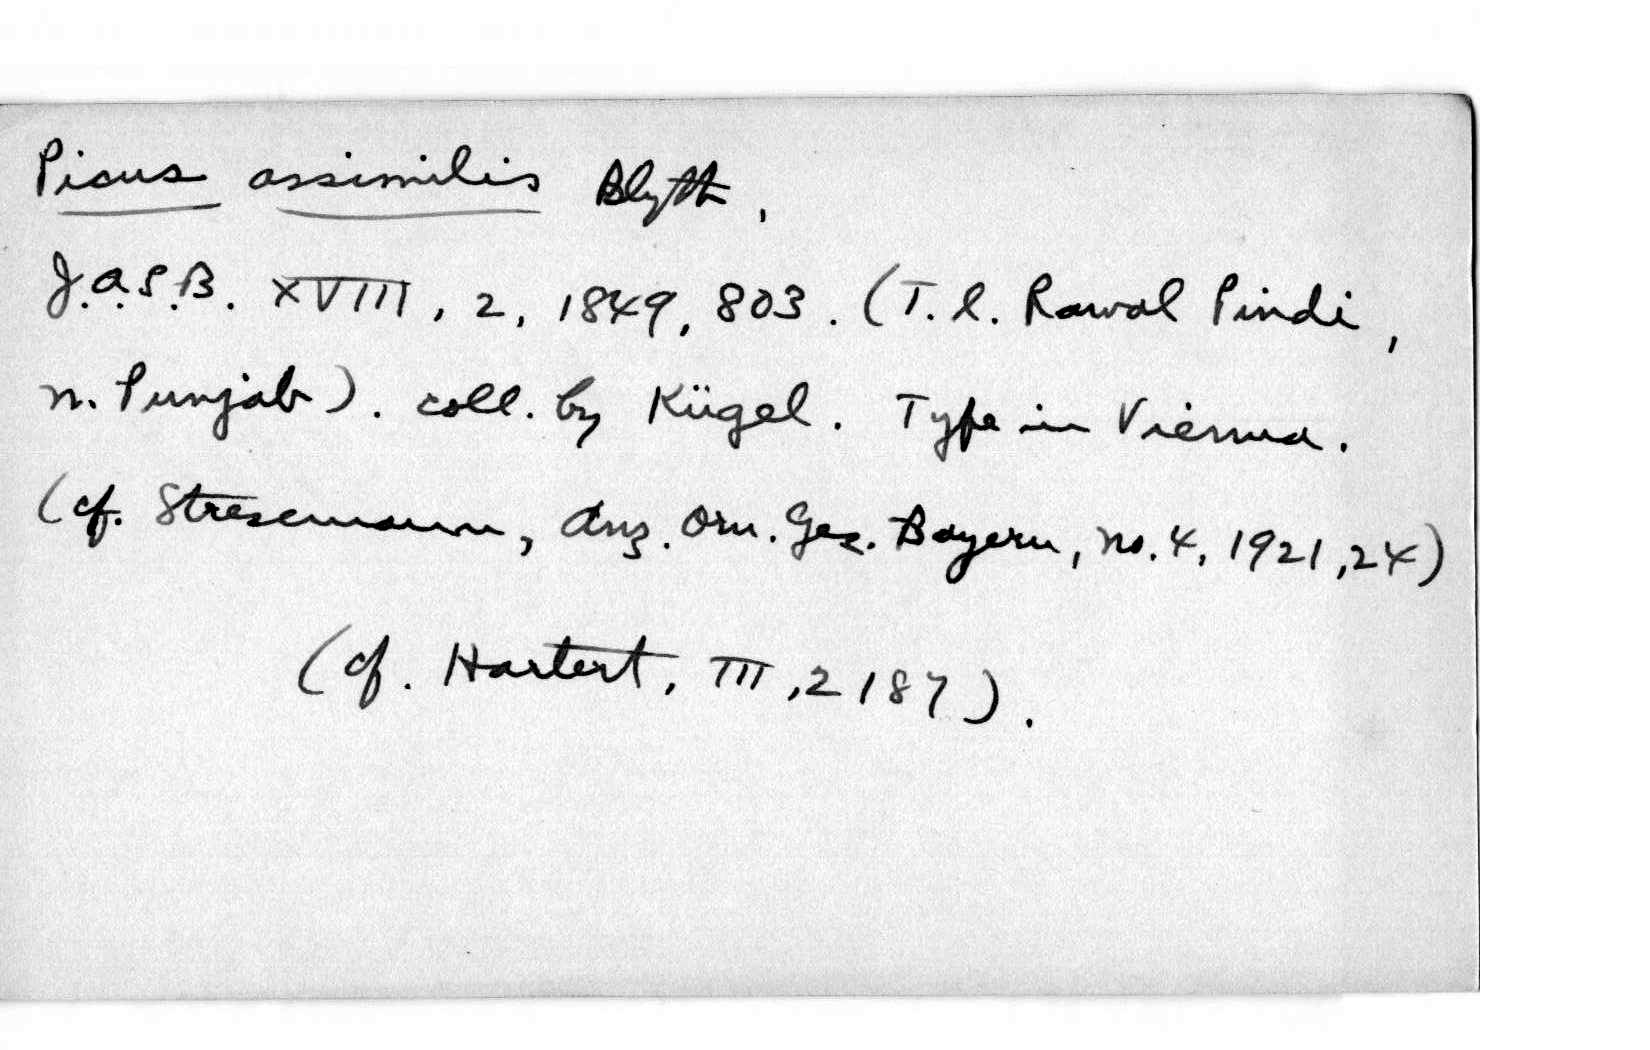 Picus assimilis Blyth,
J.A.S.B. XVIII, 2, 1849, 803. (T.l. Rawal Pindi,
n. Punjab). coll. by Kügel. Type in Vienna.
(cf. Stresemann, Anz. Orn. Ges. Bayern, no. 4, 1921, 24)
(cf. Hartert, III, 2187).